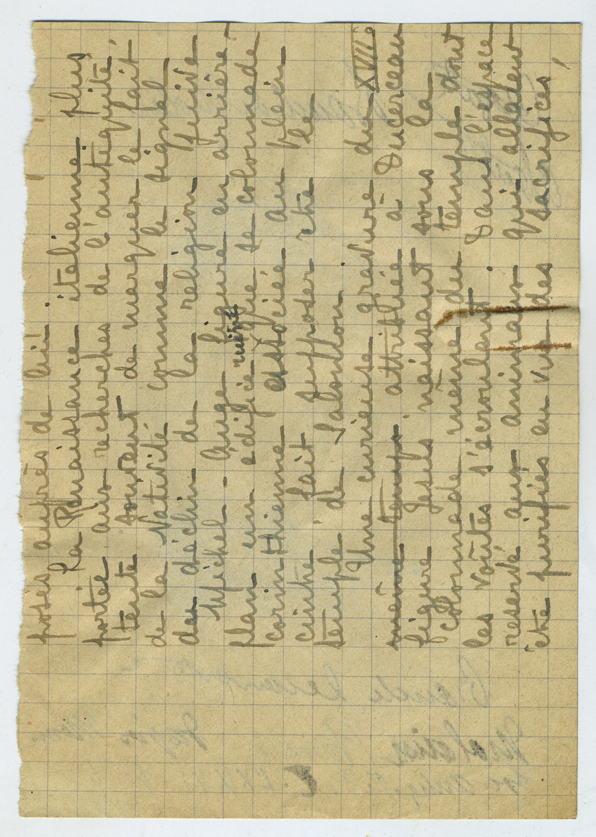 posés auprès de lui.
La Renaissance italienne plus
portée aux recherches de l'antiquité,
tente souvent de marquer le fait
de la Nativité comme le signal
du déclin de la religion Juive
Michel-Ange figure en arrière-
plan un édifice ruiné colonnade
corinthienne associée au plein
cintre fait supposer être le
temple de Salomon.
Une curieuse gravure du XVII
même temps attribuée à Ducerceau
figure Jésus naissant sous la
colonnade même du temple dont
les voûtes s'écroulent. Dans l'espace
reservé aux animaux qui allaient
être purifiés en vue des sacrifices,